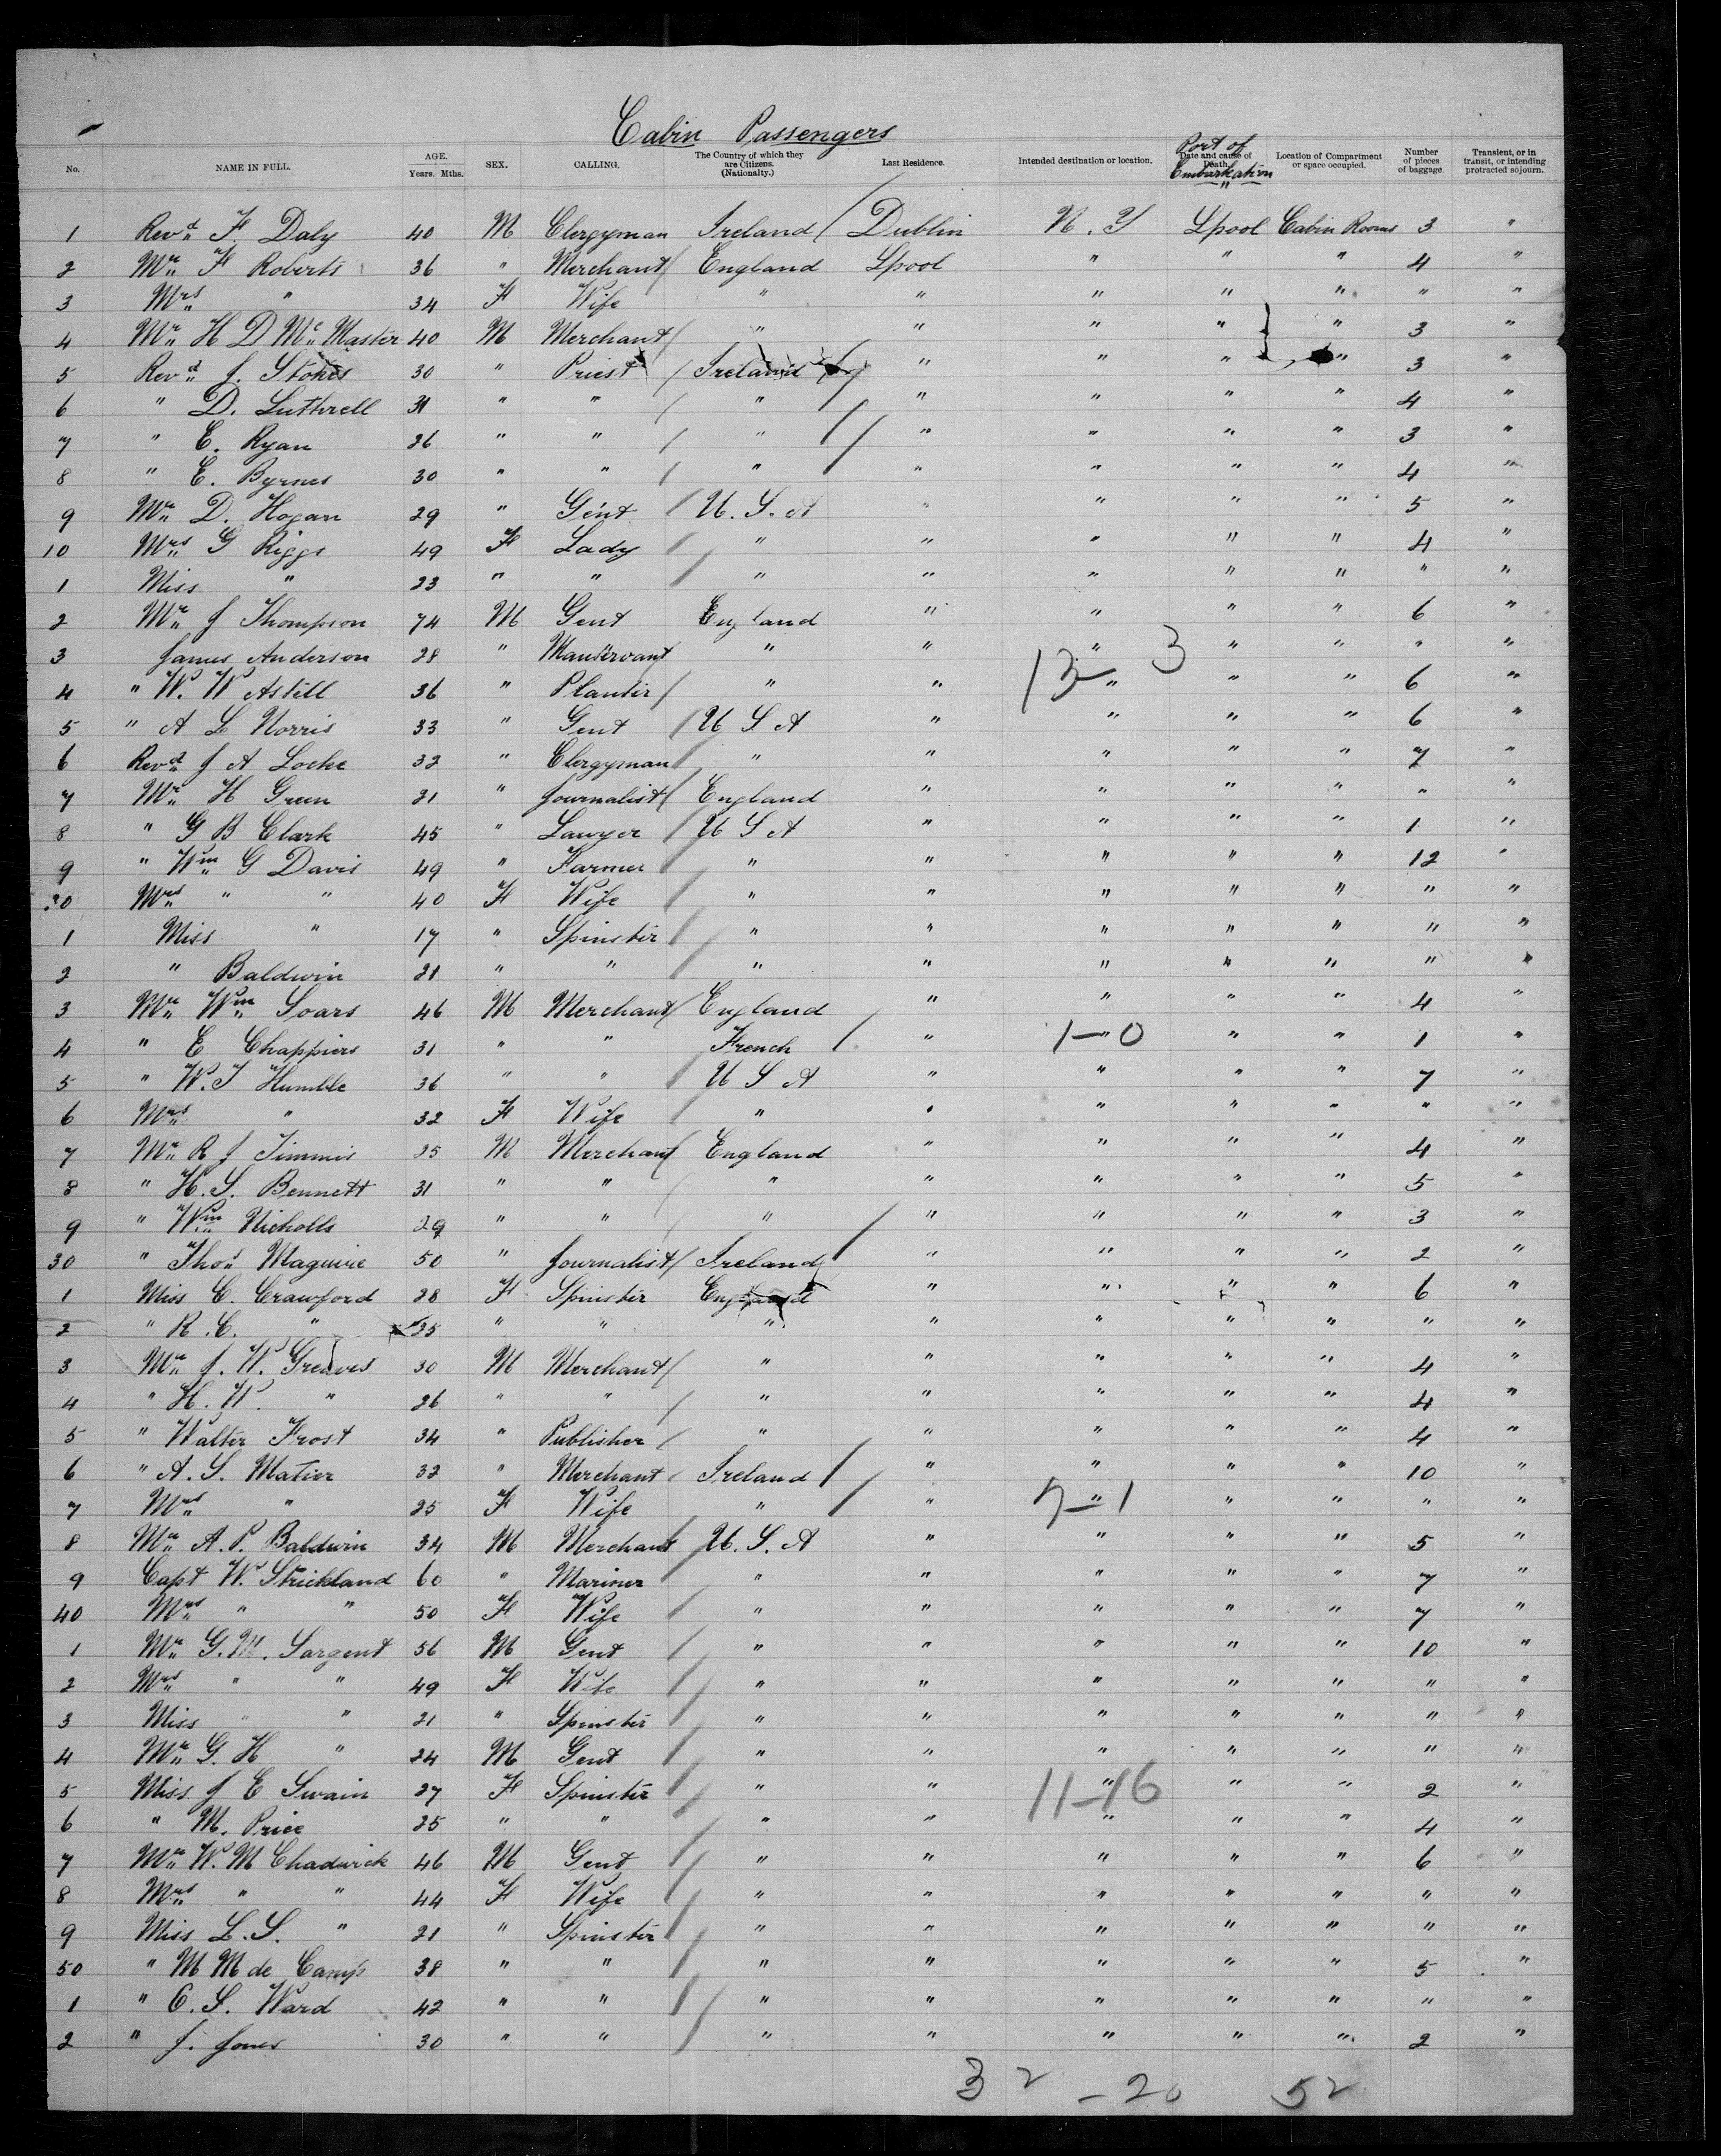 Cabin Passengers
No. NAME IN FULL. AGE. Years. Mths. SEX. CALLING. The Country of which they are Citizens. (Nationality.) Last Residence. Intended destination or location. Port of Embarkation Date and cause of Death. Location of Compartment or space occupied. Number of pieces of baggage. Transient, or in transit, or intending protracted sojourn.
1 Revd F Daly 40 M Clergyman Ireland Dublin N. Y Lpool Cabin Rooms 3 "
2 Mr F Roberts 36 " Merchant England Lpool " " " 4 "
3 Mrs " 34 F Wife " " " " " " "
4 Mr H D McMaster 40 M Merchant " " " " " 3 "
5 Revd J. Stokes 30 " Priest Ireland " " " " 3 "
6 " D. Luttrell 31 " " " " " " " 4 "
7 " E. Ryan 26 " " " " " " " 3 "
8 " E. Byrnes 30 " " " " " " " 4 "
9 Mr D. Hogan 29 " Gent U. S. A " " " " 5 "
10 Mrs G Riggs 49 F Lady " " " " " 4 "
1 Miss " 23 " " " " " " " " "
2 Mr J Thompson 74 M Gent England " " " " 6 "
3 James Anderson 28 " Manservant " " " " " " "
13 - 3
4 " W. W Astill 36 " Planter " " " " " 6 "
5 " A L Norris 33 " Gent U S A " " " " 6 "
6 Revd J A Locke 32 " Clergyman " " " " " 7 "
7 Mr H Green 21 " Journalist England " " " " " "
8 " G B Clark 45 " Lawyer U S A " " " " 1 "
9 " Wm G Davis 49 " Farmer " " " " " 12 "
20 Mrs " " 40 F Wife " " " " " " "
1 Miss " 17 " Spinster " " " " " " "
2 " Baldwin 21 " " " " " " " " "
3 Mr Wm Soars 46 M Merchant England " " " " 4 "
4 " E Chappiers 31 " " French " " " " 1 "
1 - 0
5 " W. T Humble 36 " " U S A " " " " 7 "
6 Mrs " 32 F Wife " " " " " " "
7 Mr R J Timmis 25 M Merchant England " " " " 4 "
8 " H. S. Bennett 31 " " " " " " " 5 "
9 " Wm Nicholls 29 " " " " " " " 3 "
30 " Thos Maguire 50 " Journalist Ireland " " " " 2 "
1 Miss C. Crawford 28 F Spinster England " " " " 6 "
2 " R. C. " 25 " " " " " " " " "
3 Mr J. W. Greaves 30 M Merchant " " " " " 4 "
4 " H. W. " 26 " " " " " " " 4 "
5 " Walter Frost 34 " Publisher " " " " " 4 "
6 " A. S. Matier 32 " Merchant Ireland " " " " 10 "
7 Mrs " 25 F Wife " " " " " " "
7 - 1
8 Mr A. P. Baldwin 34 M Merchant U. S. A " " " " 5 "
9 Capt W. Strickland 60 " Mariner " " " " " 7 "
40 Mrs " " 50 F Wife " " " " " 7 "
1 Mr G. M. Sargent 56 M Gent " " " " " 10 "
2 Mrs " " 49 F Wife " " " " " " "
3 Miss " " 21 " Spinster " " " " " " "
4 Mr G. H " 24 M Gent " " " " " " "
5 Miss J E Swain 27 F Spinster " " " " " 2 "
11 - 16
6 " M. Price 25 " " " " " " " 4 "
7 Mr W. M Chadwick 46 M Gent " " " " " 6 "
8 Mrs " " 44 F Wife " " " " " " "
9 Miss L. S. " 21 " Spinster " " " " " " "
50 " M M de Camp 38 " " " " " " " 5 "
1 " C. S. Ward 42 " " " " " " " " "
2 " J. Jones 30 " " " " " " " 2 "
32 - 20 52